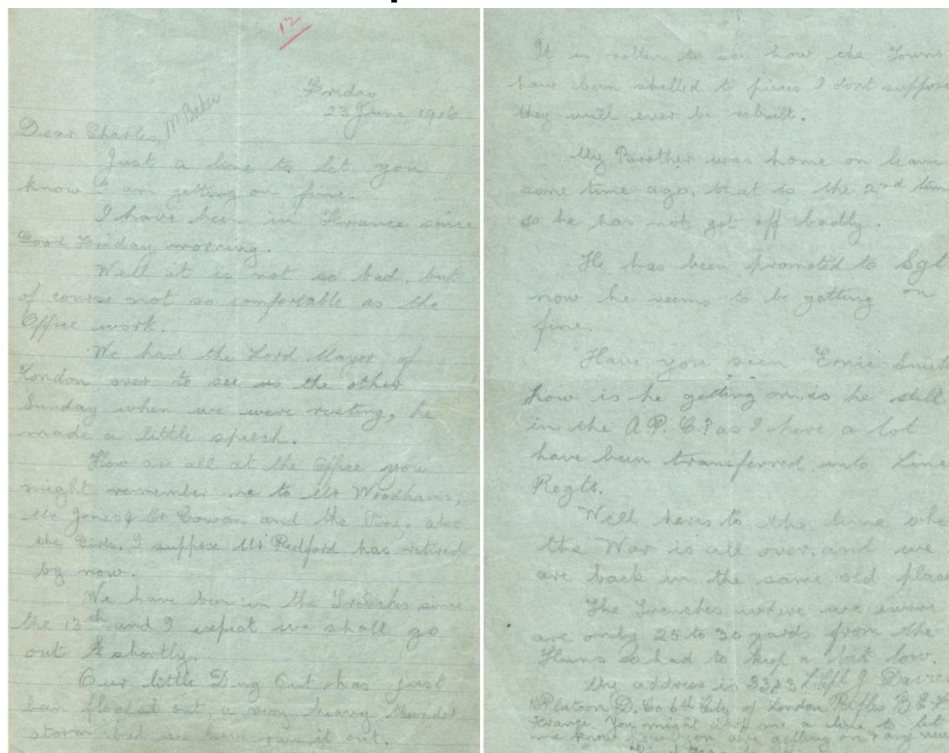 12
Friday
23 June 1916
Dear Charles, M Baker
Just a line to let you
know I am getting on fine.
I have been in France since
Good Friday morning.
Well it is not so bad, but
of course not so comfortable as the
Office work.
We had the Lord Mayor of
London over to see us the other
Sunday when we were resting, he
made a little speech.
How are all at the Office you
might remember me to Mr Woodhams,
Mr Jones & Mr Cowan and the Boys also
the Girls. I suppose Mr Pedford has retired
by now.
We have been in the Trenches since
the 13th and I expect we shall go
out shortly.
Our little Dug Out has just
been flooded out, a very heavy thunder
storm but we have run it out.
It is rotten to see how the Towns
have been shelled to pieces I dont suppose
they will ever be rebuilt.
My Brother was home on leave
some time ago, that is the 2nd time
so he has not got off badly.
He has been promoted to Sgt
now he seems to be getting on
fine.
Have you seen Ernie Smith
how is he getting on, is he still
in the A.P.C? as I hear a lot
have been transferred into Line
Regts.
Well heres to the time when
the War is all over, and we
are back in the same old place
The Trenches where we were
are only 25 to 30 yards from the
Huns so had to keep a bit low.
My address is 3323 L/Cpl J Davis
Platoon D. Co 6th City of London Rifles B.E.F
France. You might drop me a line to let
me know how you are getting on & any news